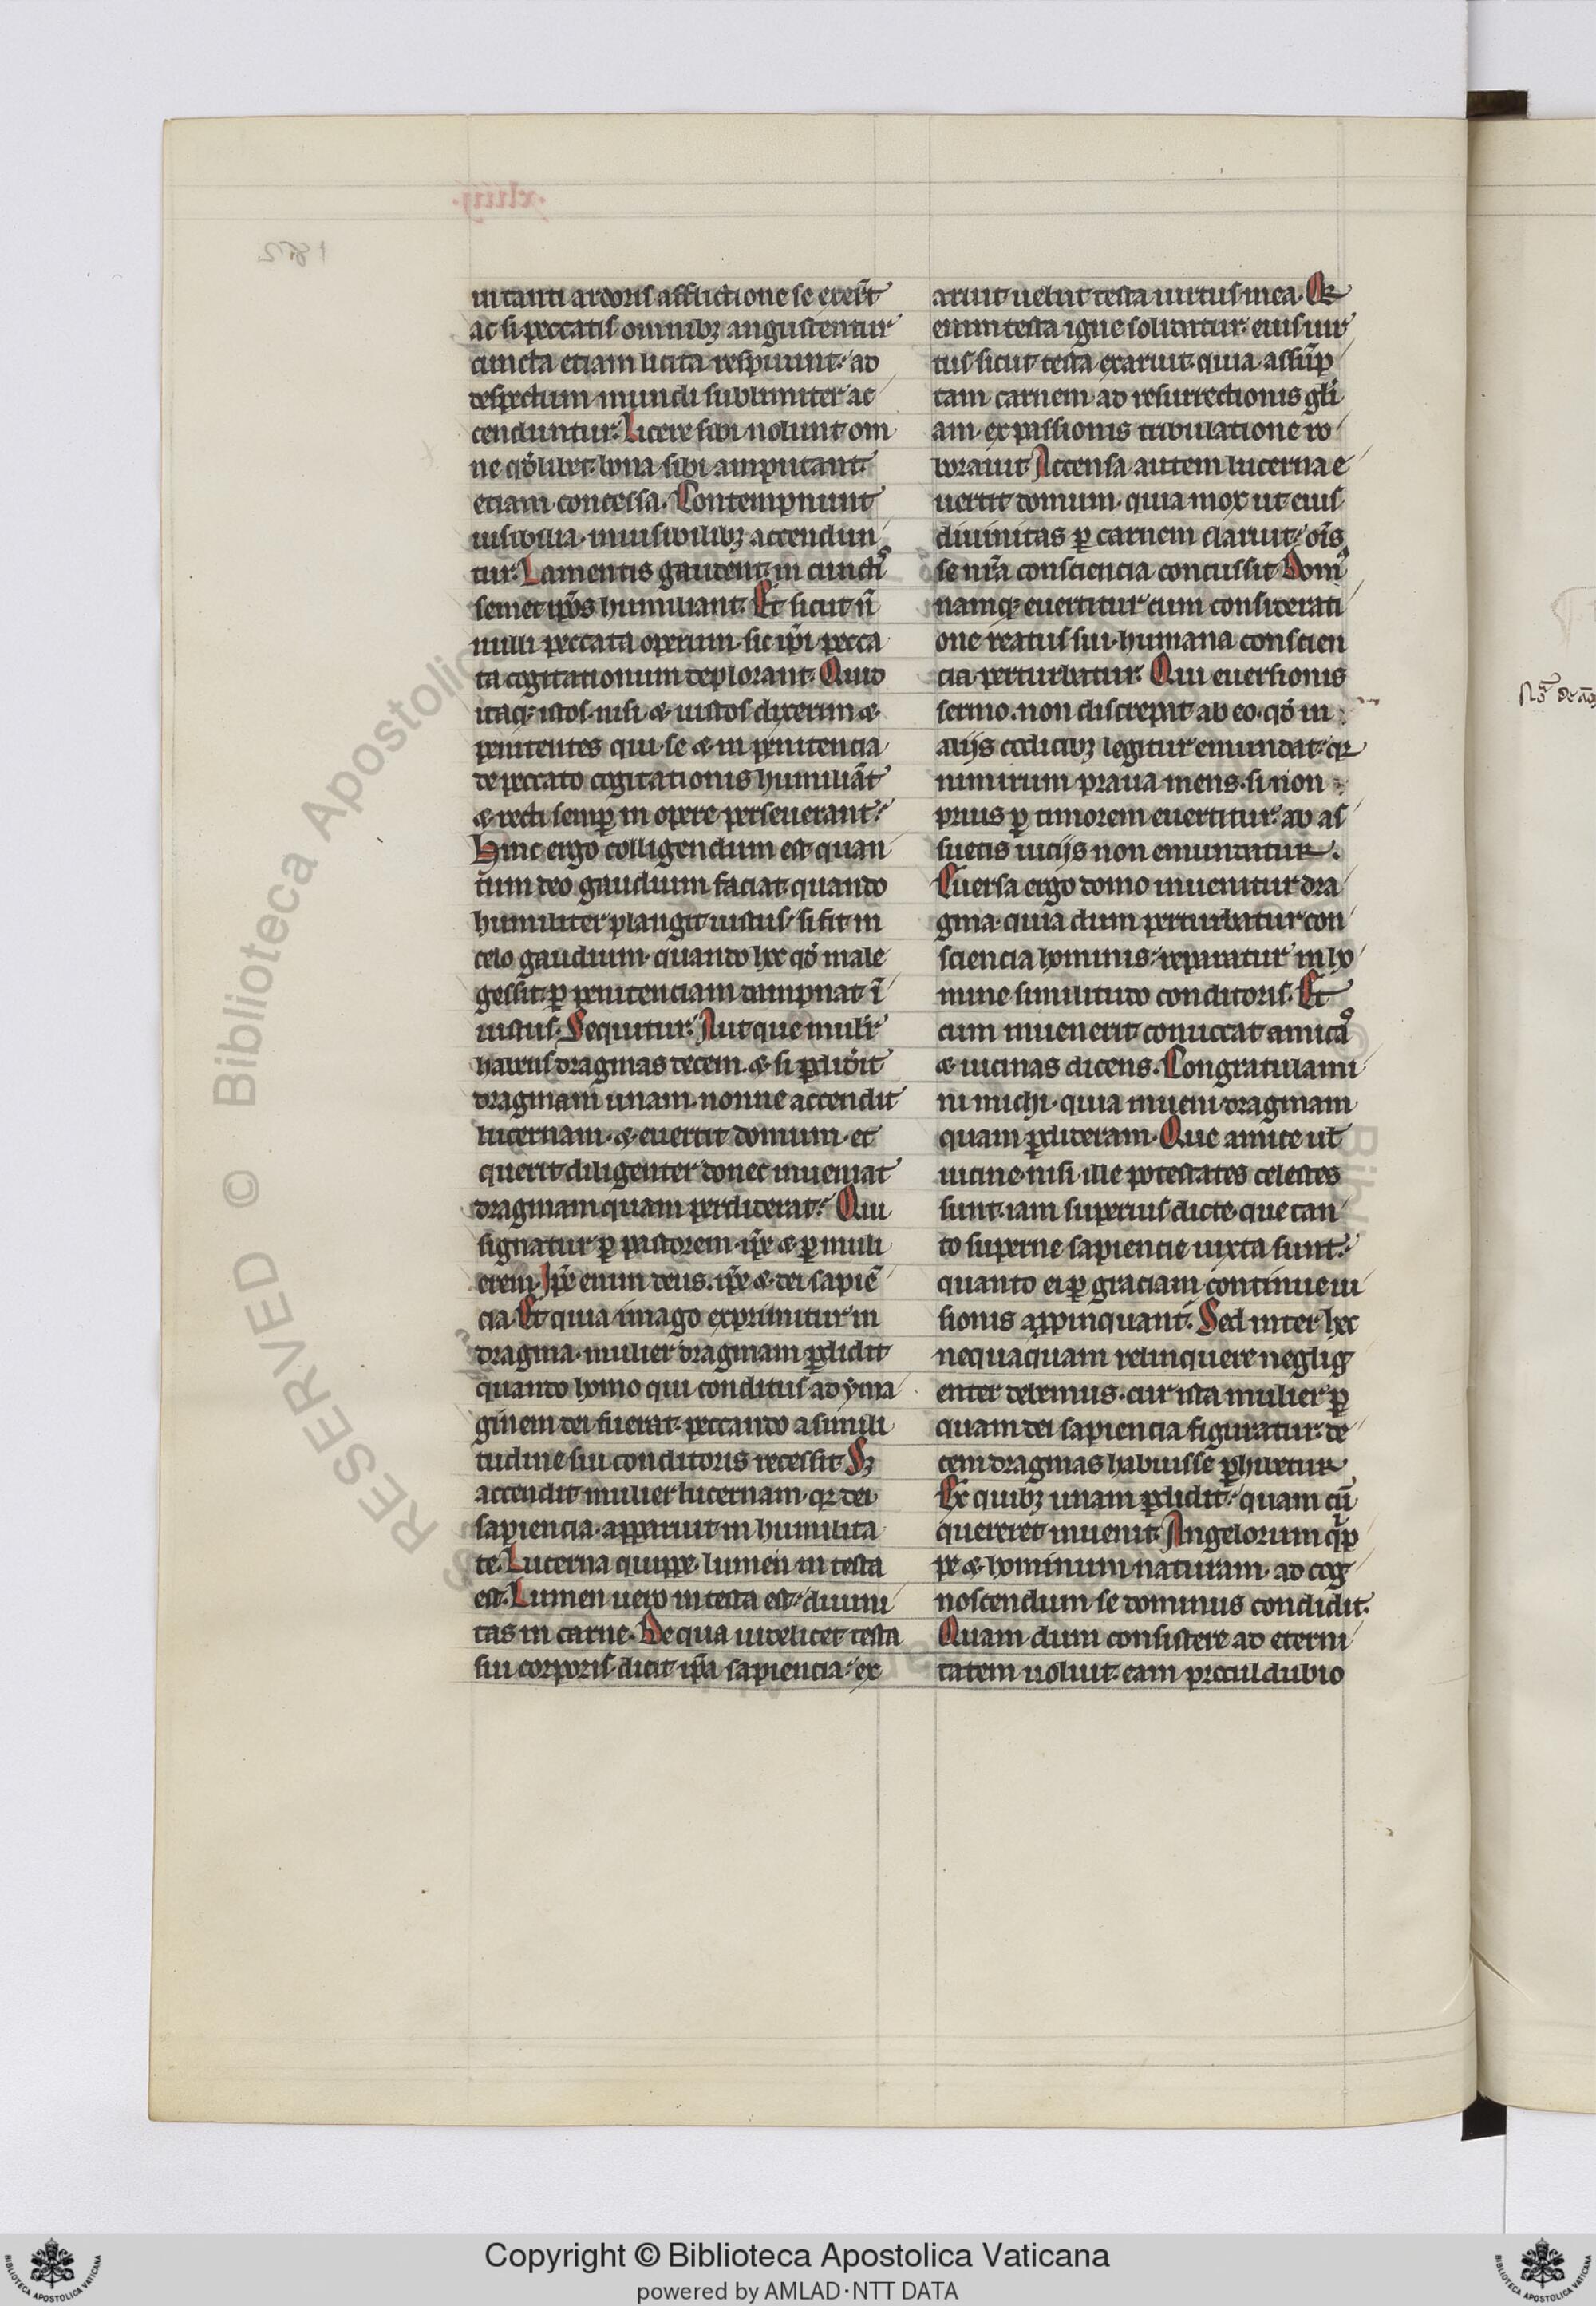 in tanti ardoris afflictione se exerc̄t
ac si peccatis omnibꝫ angustentur
cuncta etiam licita respuunt. ad
despectum mundi sublimiter ac
cenduntur. Licere sibi nolunt om
ne qd̓ libet. bona sibi amputant
etiam concessa. Contempnunt
uisibilia. inuisibilibꝫ accendun
tur. Lamentis gaudent. in cunctꝰ
semet ip̄os humiliant. Et sicut n̄
nulli peccata operum. sic ip̄i pecca
ta cogitationum deplorant. Quid
itaqꝫ istos. nisi & iustos dixerim &
penitentes qui se & in penitencia
de peccato cogitationis humiliāt
& recti semꝑ in opere perseuerant.
Hinc ergo colligendum est quan
tum deo gaudium faciat. quando
humiliter plangit iustus. si fit in
celo gaudium. quando hec qd̓ male
gessit. ꝑ penitenciam dampnat ī
iustus. Sequitur. Aut que mulir̄
habens dragmas decem. & si ꝑdid̓it
dragmam unam. nonne accendit
lucernam. & euertit domum. et
querit diligenter donec inueniat
dragmam quam perdiderat. Qui
signatur ꝑ pastorem. ip̄e & ꝑ muli
erem. Ip̄e enim deus. ip̄e & dei sapiē
cia. Et quia imago exprimitur in
dragma. mulier dragmam ꝑdidit
quando homo qui conditus ad yma
ginem dei fuerat. peccando a simili
tudine sui conditoris recessit. Sꝫ
accendit mulier lucernam. qꝛ dei
sapiencia. apparuit in humilita
te. Lucerna quippe. lumen in testa
est. Lumen uero in testa est. diuini
tas in carne. De qua uidelicet testa
sui corporis dicit ip̄a sapiencia. ex
aruit uelut testa uirtus mea. Qꝛ
enim testa igne solidatur. eius uir
tus sicut testa exaruit. quia assūp
tam carnem ad resurrectionis gl̄i
am. ex passionis tribulatione ro
borauit. Accensa autem lucerna e
uertit domum. quia mox ut eius
diuinitas ꝑ carnem claruit. om̄s
se nr̄a consciencia concussit. Domꝰ
namqꝫ euertitur cum considerati
one reatus sui. humana conscien
cia perturbatur. Qui euersionis
sermo. non discrepat ab eo. qd̓ in
alijs codicibꝫ legitur emundat. qꝛ
nimirum praua mens. si non
prius ꝑ timorem euertitur. ab as
suetis uicijs non emundatur.
Euersa ergo domo inuenitur dra
gma. quia dum perturbatur con
sciencia hominis. reparatur in ho
mine similitudo conditoris. Et
cum inuenerit conuocat amicaꝰ
& uicinas dicens. Congratulami
ni michi. quia inueni dragmam
quam ꝑdideram. Que amice ul̄
uicine. nisi ille potestates celestes
sunt. iam superius dicte. que tan
to superne sapiencie iuxta sunt.
quanto ei ꝑ graciam continue ui
sionis appinquant. Sed inter hec
nequaquam relinquere neglig
enter debemus. cur ista mulier ꝑ
quam dei sapiencia figuratur. de
cem dragmas habuisse ꝑhibetur
Ex quibꝫ unam ꝑdidit. quam cū
quereret inuenit. Angelorum qip̄
pe & hominum naturam. ad cog
noscendum se dominus condidit.
Quam dum consistere ad eterni
tatem uoluit. eam proculdubio
Copyright © Biblioteca Apostolica Vaticana
powered by AMLAD·NTT DATA